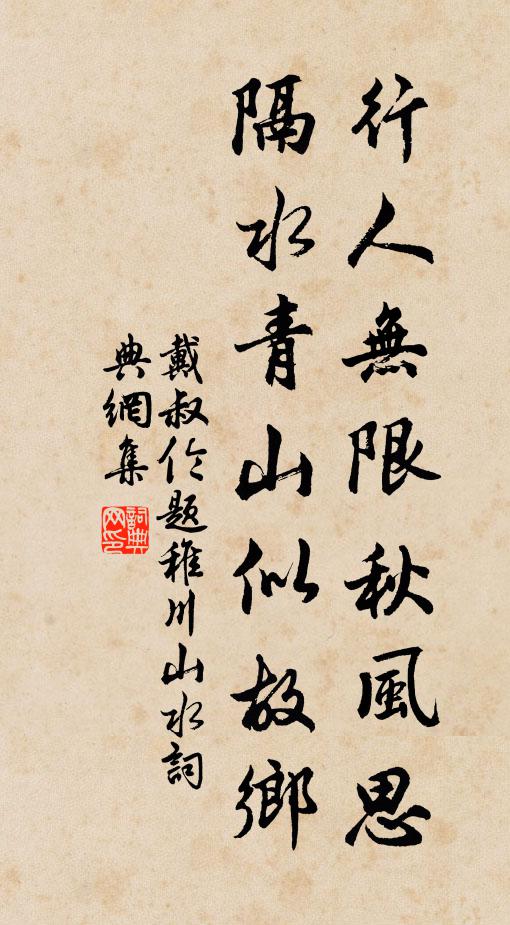 行人無限秋風思
隔水青山似故鄉
戴叔伦題稚川山水詞
典網集
詞典
网印